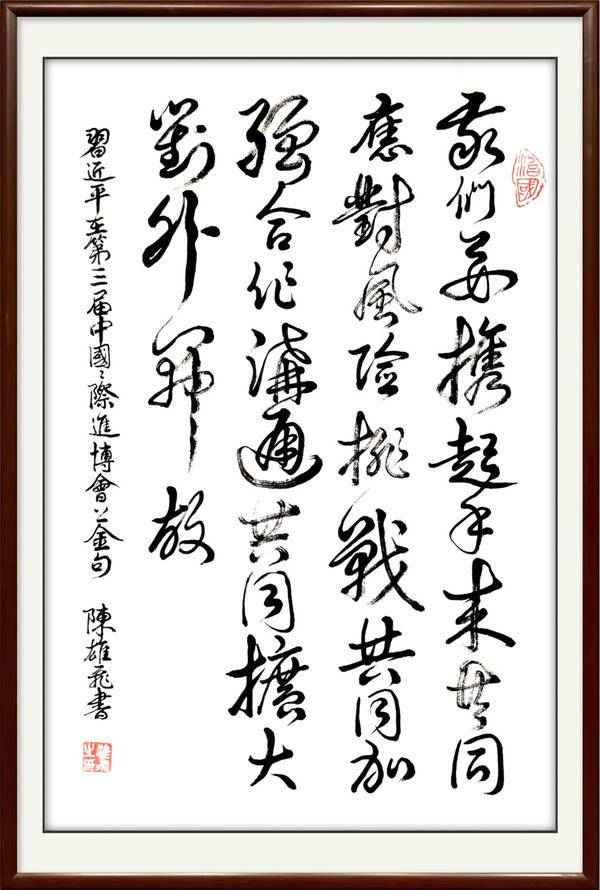 我們要携起手來共同
應對風险挑戰共同加
强合作溝通共同擴大
對外開放
習近平在第三届中國〻際進博會上金句 陳雄飛書